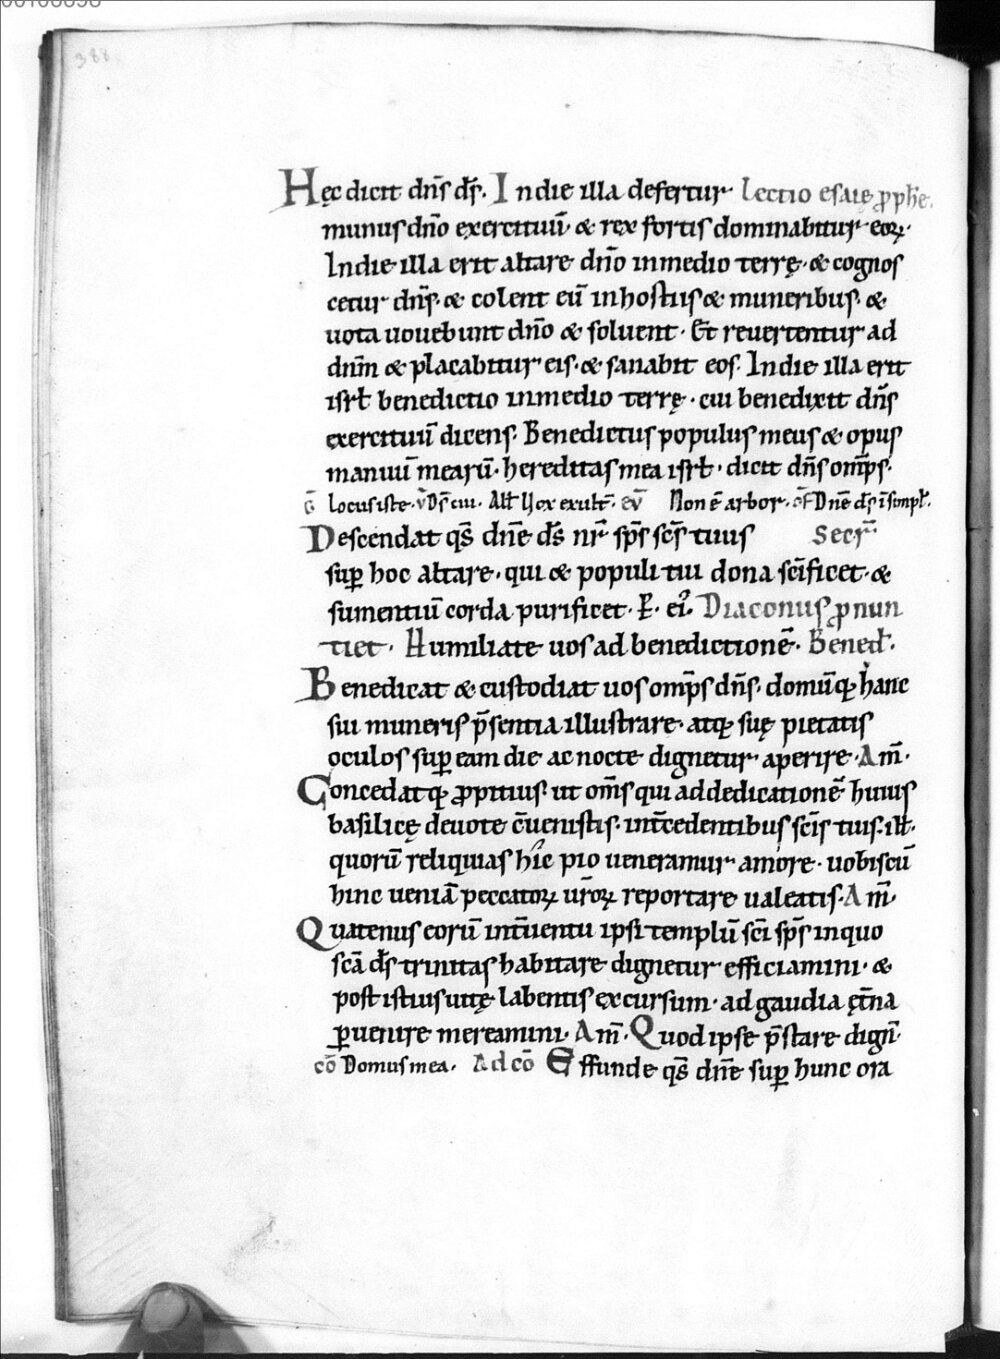 388
Hęc dicit dn̄s ds̄. In die illa defertur Lectio esaię ꝓph̄e.
munus dn̄o exercituū· & rex fortis dominabitur eoꝝ·
In die illa erit altare dn̄o in medio terrę· & cognos
cetur dn̄s· & colent eū in hostiis & muneribus· &
uota uouebunt dn̄o & soluent· Et reuertentur ad
dn̄m & placabitur eis· & sanabit eos· In die illa erit
isrł benedictio in medio terrę· cui benedixit dn̄s
exercituū dicens· Benedictus populus meus & opus
manuū mearū· hereditas mea isrł· dicit dn̄s omp̄s·
Locus iste· Ds̄ cui· All Uox exult̄· eū Non ē arbor· of Dn̄e ds̄ ī simpł·
Descendat qs̄ dn̄e ds̄ nr̄ sp̄s sc̄s tuus Secr̄
suꝑ hoc altare· qui & populi tui dona sc̄ificet· &
sumentiū corda purificet· P̄· ei· Diaconus ꝓnun
tiet· Humiliate uos ad benedictionē· Bened·
Benedicat & custodiat uos omp̄s dn̄s· domūqꝫ hanc
sui muneris p̄sentia illustrare· atqꝫ suę pietatis
oculos suꝑ eam die ac nocte dignetur aperire· Am̄·
Concedatqꝫ ꝓpitius· ut om̄s qui ad dedicationē huius
basilicę deuote c̄uenistis· int̄cedentibus sc̄is tuis· ilł·
quorū reliquias hic pio ueneramur amore· uobiscū
hinc ueniā peccatoꝝ ur̄oꝝ reportare ualeatis· Am̄·
Quatenus eorū int̄uentu ipsi templū sc̄i sp̄s in quo
sc̄a ds̄ trinitas habitare dignetur efficiamini· &
post istius uitę labentis excursum· ad gaudia ęt̄na
ꝑuenire mereamini· Am̄· Quod ipse p̄stare dign̄·
cō Domus mea· Ad cō Effunde qs̄ dn̄e suꝑ hunc ora